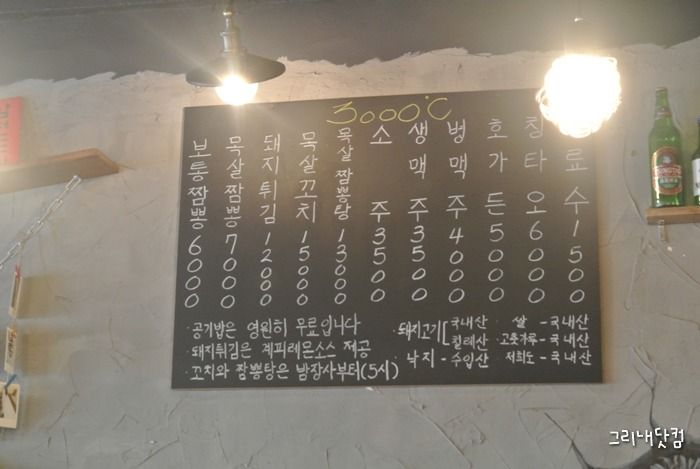 3000°C
보통짬뽕 6000
목살짬뽕 7000
돼지튀김 12000
목살꼬치 15000
목살짬뽕탕 13000
소주 3500
생맥주 3500
병맥주 4000
호가든 5000
칭타오 6000
료수 1500
· 공기밥은 영원히 무료입니다
· 돼지튀김은 계피레몬소스 제공
· 꼬치와 짬뽕탕은 밤장사부터(5시)
· 돼지고기 [국내산
칠레산
낙지 - 수입산
· 쌀 - 국내산
고춧가루 - 국내산
저희도 - 국내산
그리내닷컴